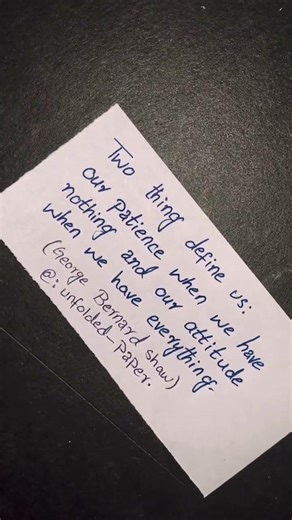 Two thing define us:
our patience when we have
nothing and our attitude
when we have everything.
(George Bernard shaw)
@: unfolded_paper.